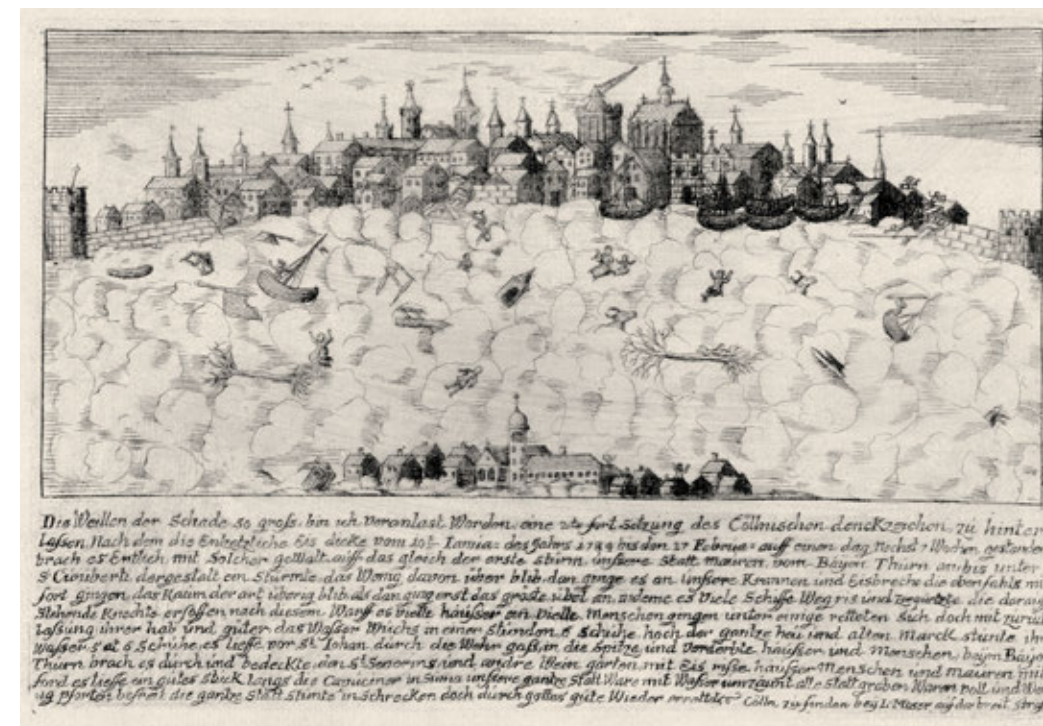 Die Weillen der Schade so groß, bin ich Veranlast Worden, eine 2te fort-Setzung des Cöllnischen denckzeichen, zu hinter
lassen, Nach dem die Entzetzliche Eis dicke vom des Jahrs 1784 bis den 27 Februa: auff einen dag Wochen gestanden
brach es Entlich mit Solcher geWalt, auff das gleich der erste sturm unssere Statt mauren, vom Bayen Thurn an bis unter
S Cuniberti dergestalt ein Stürmte, das Wenig davon über blib, dan ginge es an Unssere Krannen und Eisbreche die ebenfahls mit
fort gingen, das Kaum der art überig blib, als dan ging erst das gröste übel an, indeme es Viele Schiffe Weg ris und die darauf
Stehende Knechte ersoffen nach diesem Warff es vielle häusser ein Vielle Menschen gingen unter einige retteten Sich doch mit zurück
lassung ihrer hab und güter, das Wasser Wuchs in einer Stundon 6 Schuhe hoch der gantze heu und alten Marck stunte
Wasser 5 at 6 Schuhe, es lieffe vor St Iohan durch die Wehr gass, in die Spitze und Verderbte häusser und Menschen, beym
Thurn brach es durch und bedeckte, den St Severins und andre Wein gärten, mit Eis risse häusser Menschen und Mauren mit
fond es lieffe ein gutes Stück langs die Capuciner in Suma unssere gantze Statt Ware mit Wasser umzäunt alle Statt graben Waren Voll und
pforten befreit die gantze Statt Stunte in Schrecken doch durch gottes güte Wieder errettet Cölln. Zu finden bey L: Moser auf der breit